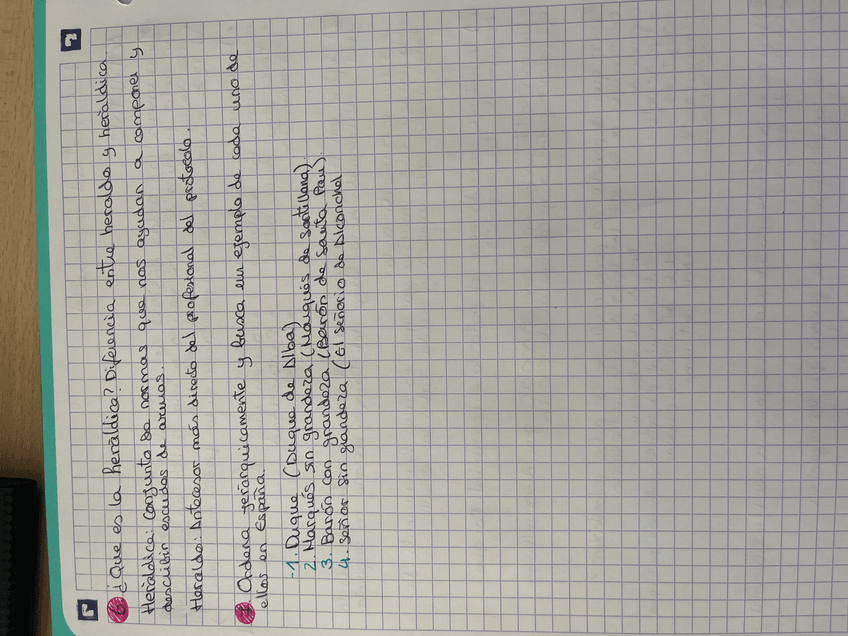 6. ¿Que es la heráldica? Diferencia entre heraldo y heráldica.
Heráldica: Conjunto de normas que nos ayudan a componer y
describir escudos de armas.
Heraldo: Antecesor más directo del profesional del protocolo.
7. Ordena jerárquicamente y busca un ejemplo de cada uno de
ellos en España.
-1. Duque (Duque de Alba)
2. Marqués sin grandeza (Marqués de Santillana).
3. Barón con grandeza (Barón de Santa Pau).
4. Señor sin grandeza (El señorio de Alconchel